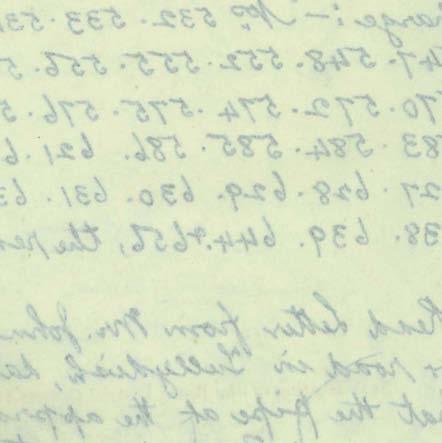 arge :- Nos 532. 533. 53
47. 548. 552. 555. 556. 5
70. 572. 574. 575. 576. 5
83. 584. 585. 586. 621. 6
27. 628. 629. 630. 631. 63
38. 639. 644. & 656, the ren
Read letter from Mr. John
road in
at the pipe at the appro